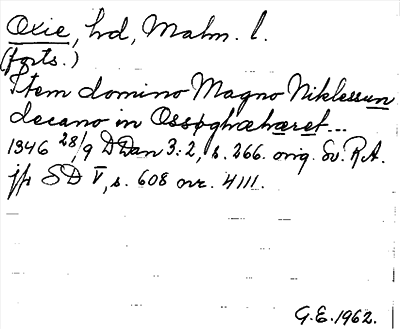 Oxie, hd, Malm. l.
(forts.)
Item domino Magno Niklessun
decano in Ossøghæhæret...
1346 28/9 DDan 3:2, s. 266. orig. Sv. R.A.
jfr SD V, s. 608 nr. 4111.
G.E. 1962.